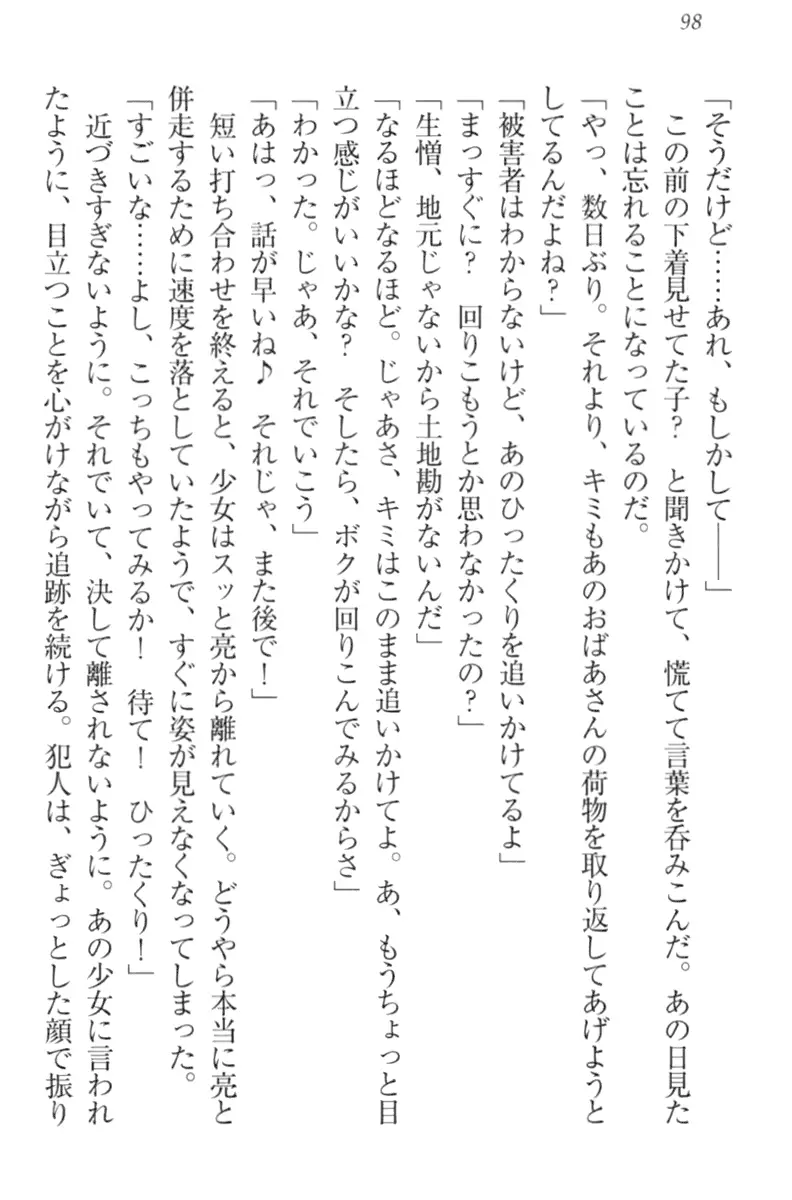 98
「そうだけど……あれ、もしかして――」
　この前の下着見せてた子？　と聞きかけて、慌てて言葉を呑みこんだ。あの日見た
ことは忘れることになっているのだ。
「やっ、数日ぶり。それより、キミもあのおばあさんの荷物を取り返してあげようと
してるんだよね？」
「被害者はわからないけど、あのひったくりを追いかけてるよ」
「まっすぐに？　回りこもうとか思わなかったの？」
「生憎、地元じゃないから土地勘がないんだ」
「なるほどなるほど。じゃあさ、キミはこのまま追いかけてよ。あ、もうちょっと目
立つ感じがいいかな？　そしたら、ボクが回りこんでみるからさ」
「わかった。じゃあ、それでいこう」
「あはっ、話が早いね♪　それじゃ、また後で！」
　短い打ち合わせを終えると、少女はスッと亮から離れていく。どうやら本当に亮と
併走するために速度を落としていたようで、すぐに姿が見えなくなってしまった。
「すごいな……よし、こっちもやってみるか！　待て！　ひったくり！」
　近づきすぎないように。それでいて、決して離されないように。あの少女に言われ
たように、目立つことを心がけながら追跡を続ける。犯人は、ぎょっとした顔で振り